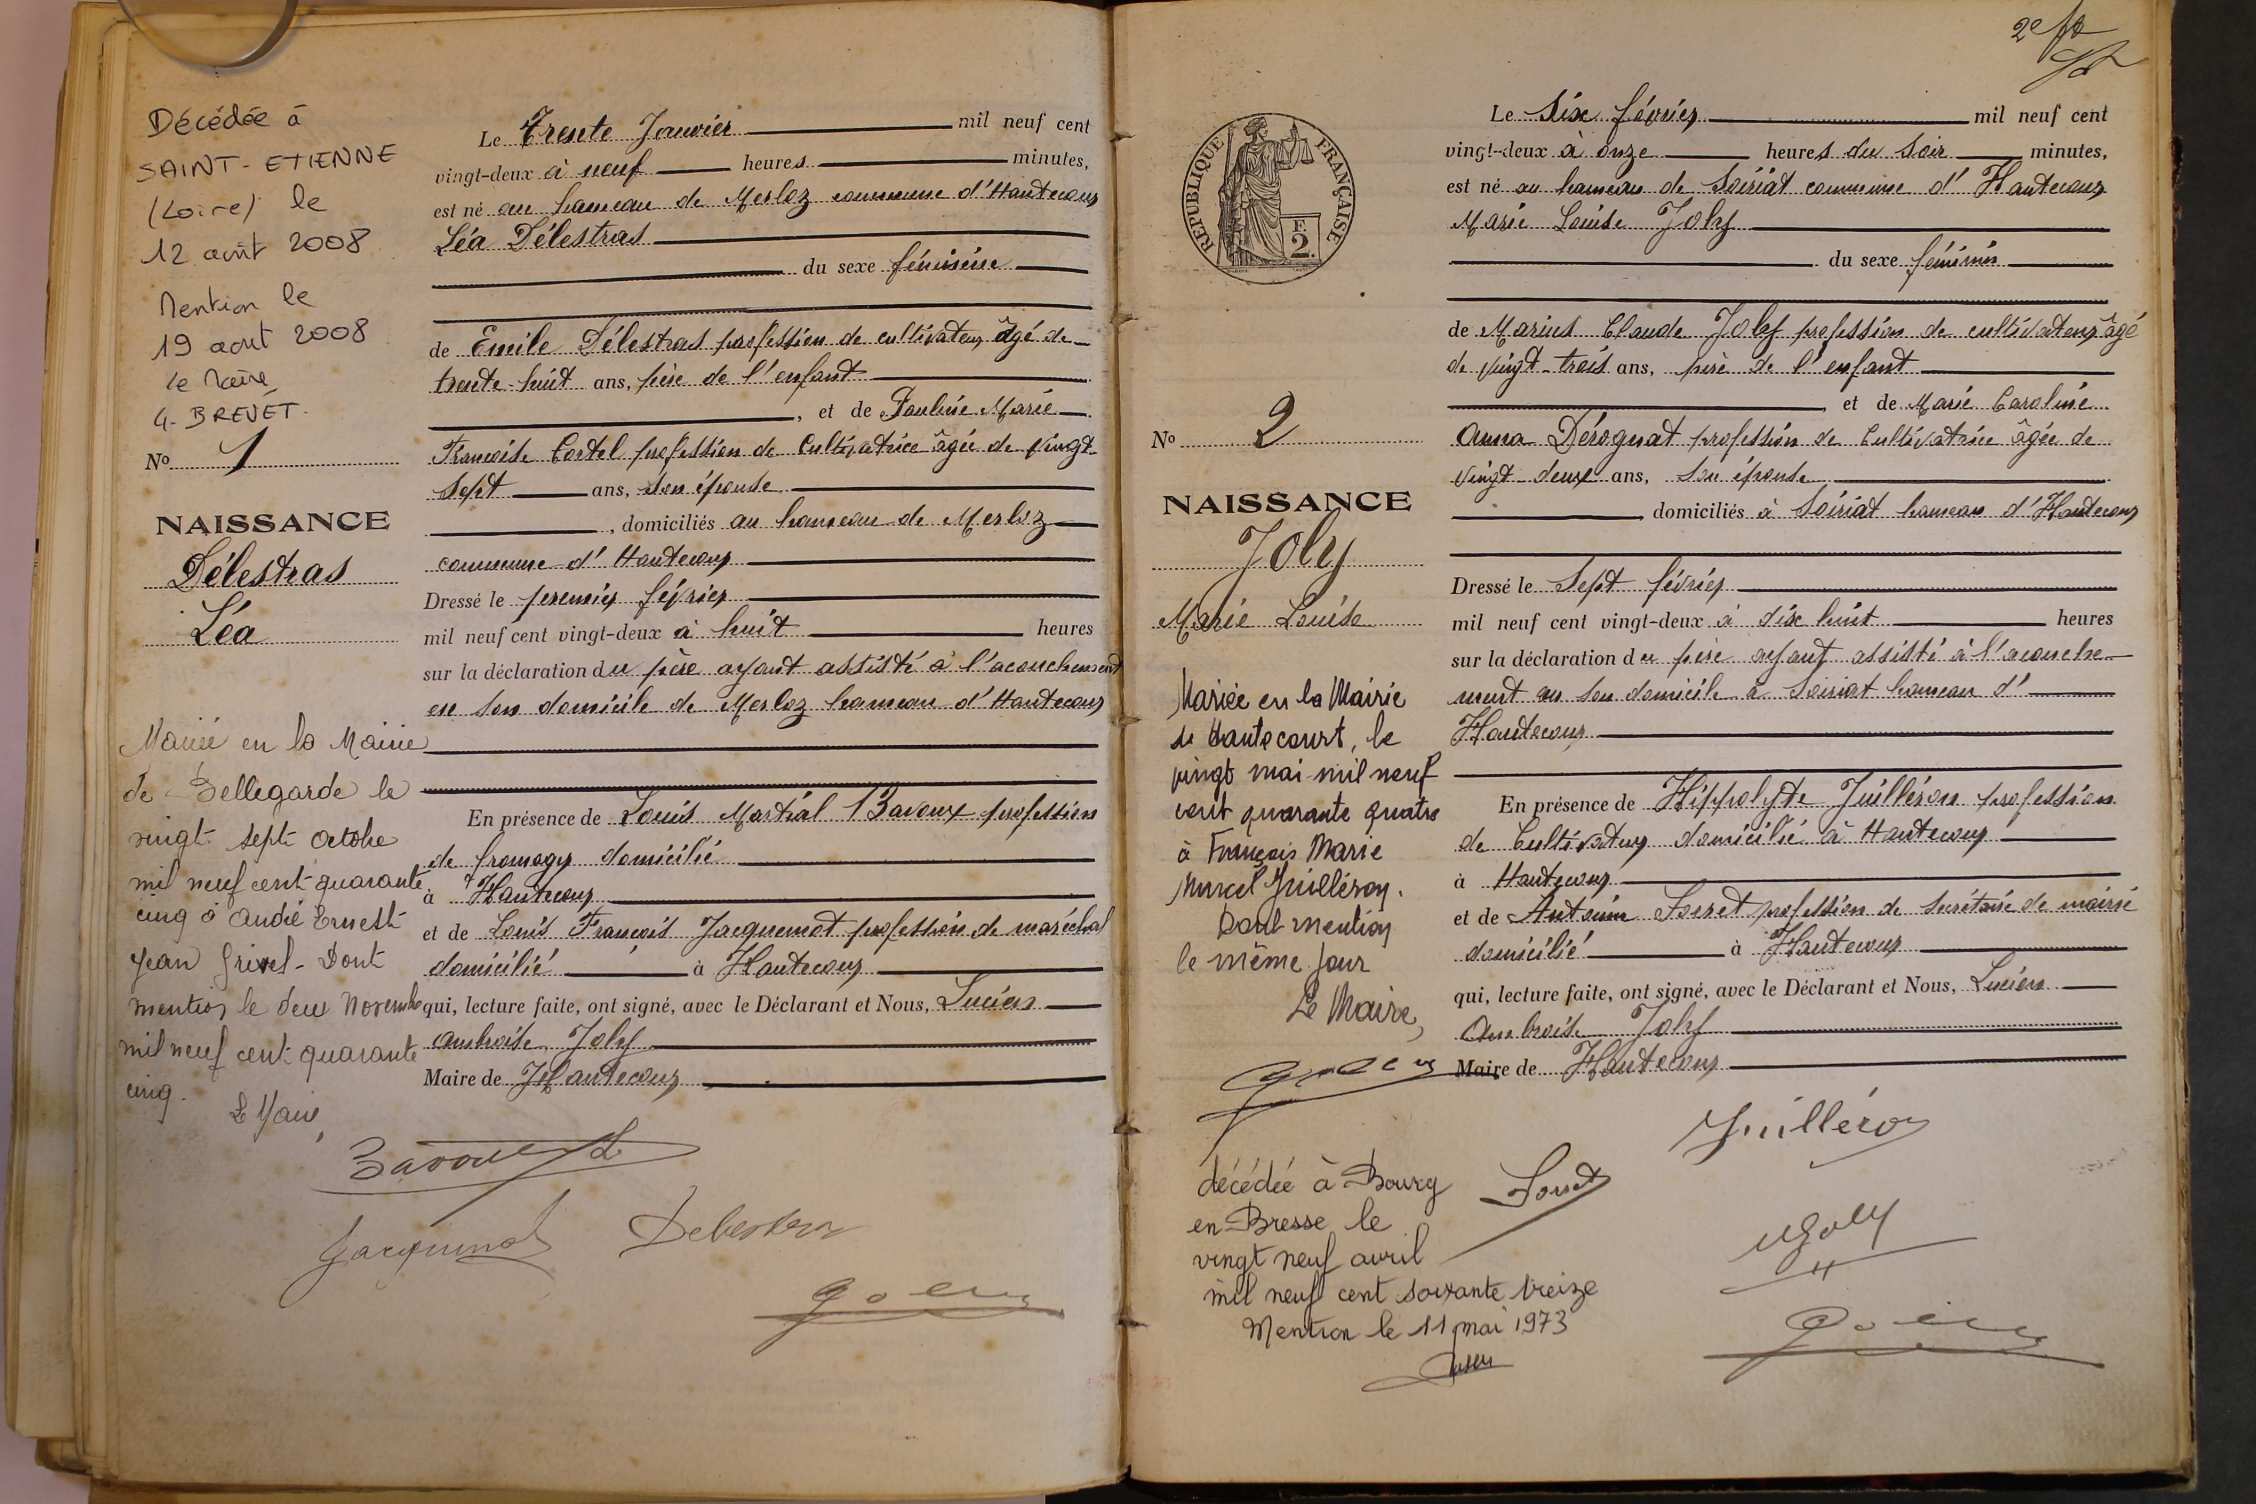 Décédée à
SAINT-ETIENNE
(Loire) le
12 août 2008
Mention le
19 aout 2008
Le Maire
G. BREVET.
No 1
NAISSANCE
Délestras
Léa
Mariée en la Mairie
de Bellegarde le
vingt sept Octobre
mil neuf cent quarante
cinq à André Ernest
Jean Grivel - Dont
mention le deux Novembre
mil neuf cent quarante
cinq.
Le Maire,
Le Trente Janvier mil neuf cent
vingt-deux à neuf heures minutes,
est né au hameau de Merloz commune d'Hautecour
Léa Délestras
du sexe féminin
de Emile Délestras profession de cultivateur âgé de
trente-huit ans, père de l'enfant
, et de Pauline Marie
Françoise Cortel profession de Cultivatrice âgée de vingt
sept ans, son épouse
, domiciliés au hameau de Merloz
commune d'Hautecour
Dressé le premier février
mil neuf cent vingt-deux à huit heures
sur la déclaration du père ayant assisté à l'acouchement
en son domicile de Merloz hameau d'Hautecour
En présence de Louis Martial Bavoux profession
de fromager domicilié
à Hautecour
et de Louis François Jacquemot profession de maréchal
domicilié à Hautecour
qui, lecture faite, ont signé, avec le Déclarant et Nous, Lucien
Ambroise Joly
Maire de Hautecour
Bavoux L
Jacquemot Delestras
2e fo
RÉPUBLIQUE FRANÇAISE
F.
2.
No 2
NAISSANCE
Joly
Marie Louise
Mariée en la Mairie
de Hautecourt, le
vingt mai mil neuf
cent quarante quatre
à François Marie
Marcel Juilléron.
Dont mention
le même jour
Le Maire,
décédée à Bourg
en-Bresse le
vingt neuf avril
mil neuf cent soixante treize
Mention le 11 mai 1973
Le Six février mil neuf cent
vingt-deux à onze heures du soir minutes,
est né au hameau de Soiriat commune d'Hautecour
Marie Louise Joly
du sexe féminin
de Marius Claude Joly profession de cultivateur âgé
de vingt-trois ans, père de l'enfant
et de Marie Caroline
Anna Dérognat profession de Cultivatrice âgée de
vingt deux ans, son épouse
domiciliés à Soiriat hameau d'Hautecour
Dressé le Sept février
mil neuf cent vingt-deux à dix huit heures
sur la déclaration du père ayant assisté à l'acouche-
ment en son domicile à Soiriat hameau d'
Hautecour
En présence de Hippolyte Juilléron profession
de Cultivateur domicilié à Hautecour
à Hautecour
et de Antonin Soret profession de secrétaire de mairie
domicilié à Hautecour
qui, lecture faite, ont signé, avec le Déclarant et Nous, Lucien
Ambroise Joly
Maire de Hautecour
Juilléron
Soret
MJoly